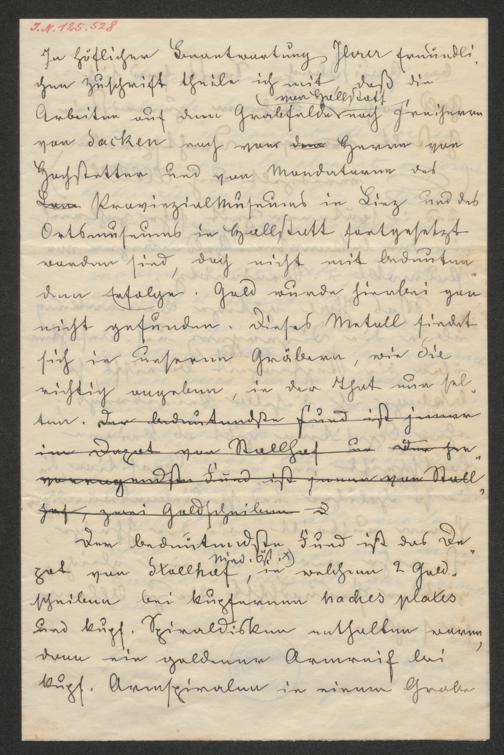 J.N. 125.528
In höflicher Beantwortung Ihrer freundli-
chen Zuschrift theile ich mit, daß die
von Hallstatt
Arbeiten auf dem Grabfelde nach Freiherrn
von Sacken noch von dem Herrn von
Hochstetter und von Mandataren des
Provinzialmuseums in Linz und des
Ortsmuseums in Hallstatt fortgesetzt
worden sind, doch nicht mit bedeuten-
dem Erfolge. Gold wurde hierbei gar
nicht gefunden. Dieses Metall findet
sich in unseren Gräbern, wie Sie
richtig angeben, in der That nur sel-
ten. Der bedeutendste Fund ist jener
im Depot von Stollhof Der her-
vorragendste Fund ist jener von Stoll-
hof, zwei Goldscheiben
Der bedeutendste Fund ist das De-
pot von Stollhof, in welchem 2 Gold-
scheiben bei kupfernen haches plates
und kupf. Spiraldisken enthalten waren,
dann ein goldener Armreif bei
kupf. Armspiralen in einem Grabe